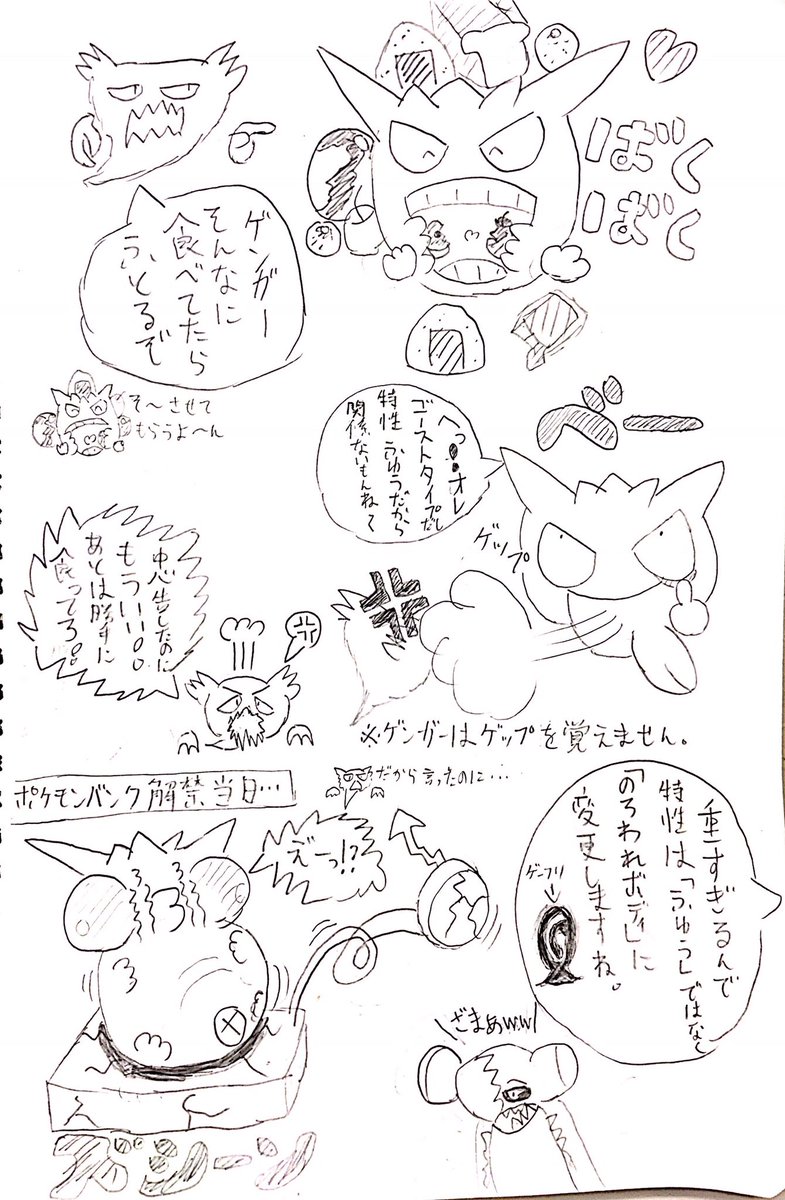 ばく
ばく
ゲンガー
そんなに
食べてたら
ふとるで
そ〜させて
もらうよ〜ん
へっ・・オレ
ゴーストタイプだし
特性ふゆうだから
関係ないもんね〜
べー
ゲップ
忠告したのに
もういい。。
あとは勝手に
食ってろ。。
※ゲンガーはゲップを覚えません。
だから言ったのに…
ポケモンバンク解禁当日…
えーっ!?
重すぎるんで
特性は「ふゆう」ではなく
「のろわれボディ」に
変更しますね。
ゲーフリ
ざまぁww
ズシーン